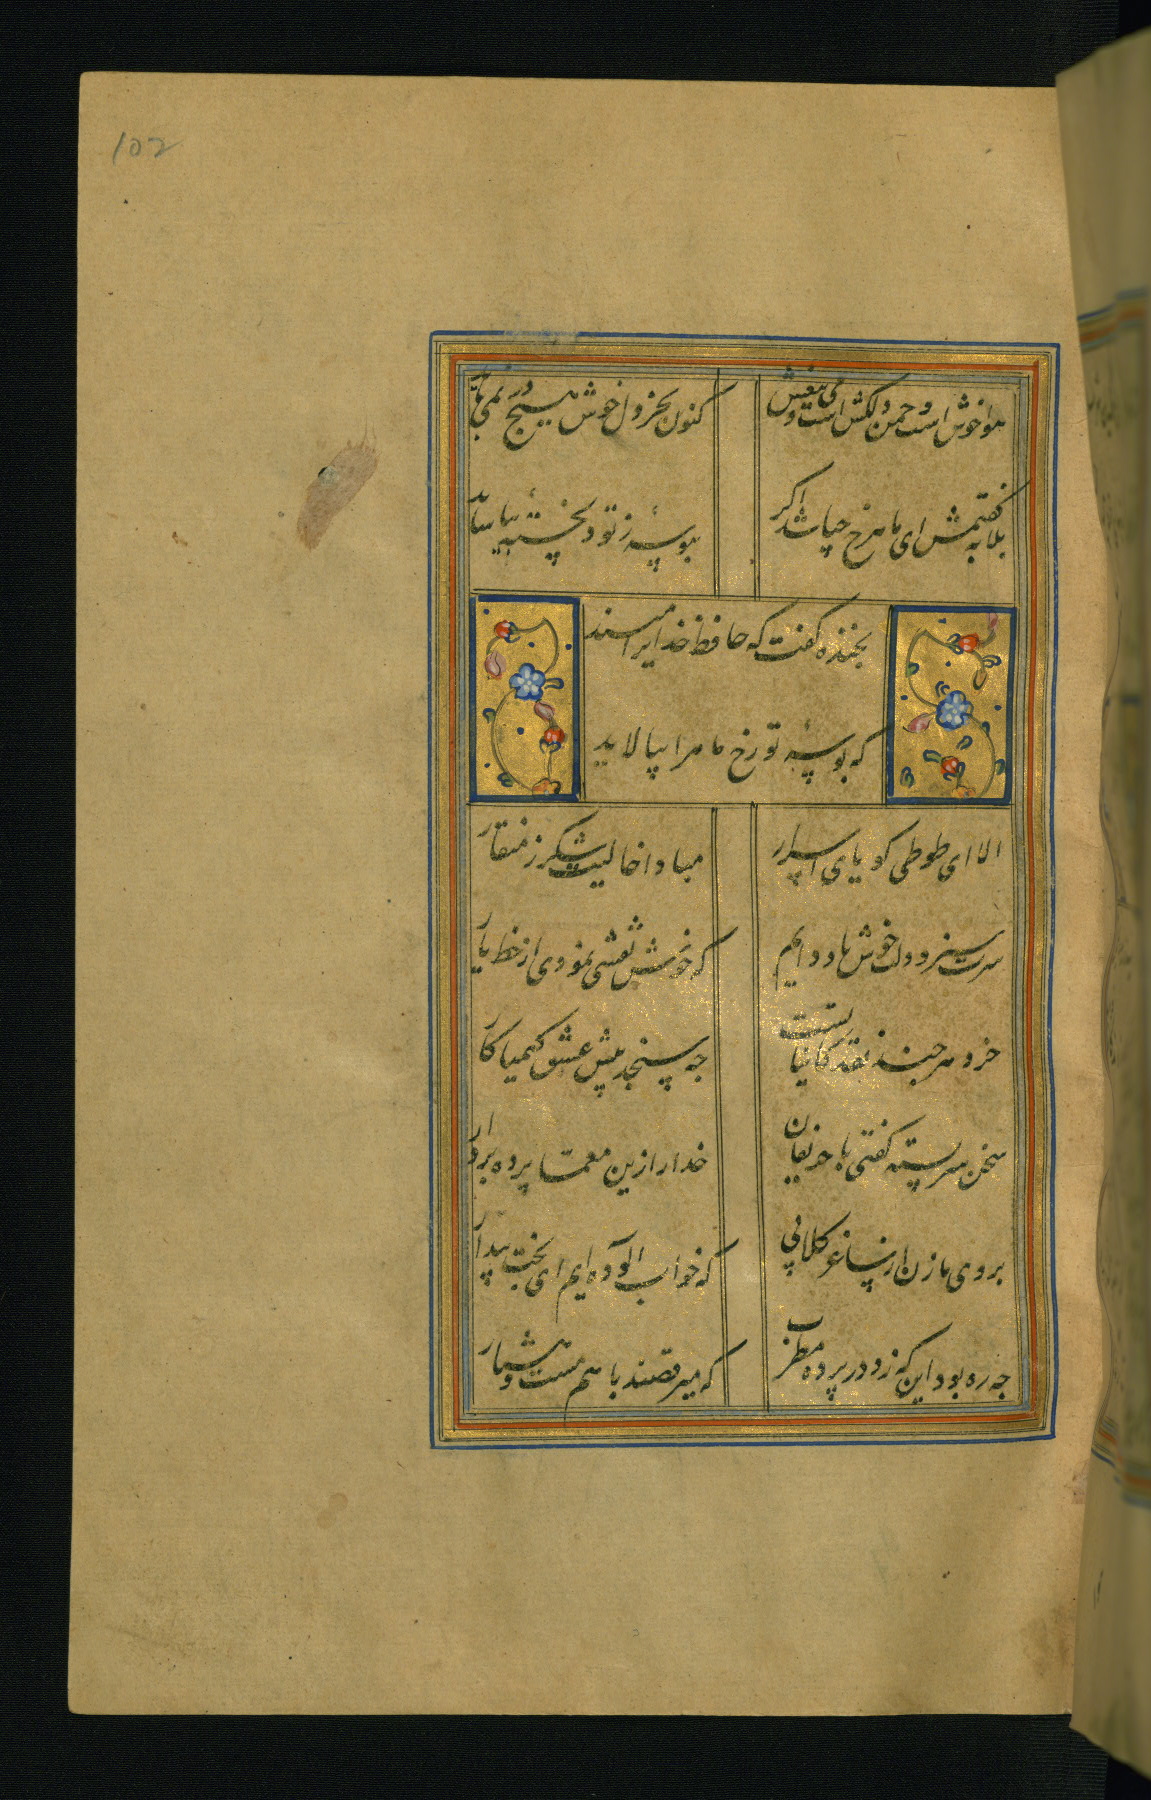 102
هوا خوش است و چمن دلکش است و می بیغش
کنون بجز دل خوش هیچ در نمی باید
بلابه گفتمش ای ماه رخ چه باشد اگر
ببوسهٔ ز تو دلخستهٔ بیاساید
بخنده گفت که حافظ خدایرا مپسند
که بوسهٔ تو رخ ماه را بیالاید
الا ای طوطی گویای اسرار
مبادا خالیت شکر ز منقار
سرت سبز و دلت خوش باد دایم
که خوش نقشی نمودی از خط یار
خرد هر چند نقد کایناتست
چه سنجد پیش عشق کیمیا کار
سخن سربسته گفتی با حریفان
خدا را زین معما پرده بردار
بروی ما زن از ساغر گلابی
که خواب آلوده ایم ای بخت بیدار
چه ره بود این که زد در پرده مطرب
که میرقصند با هم مست و هشیار